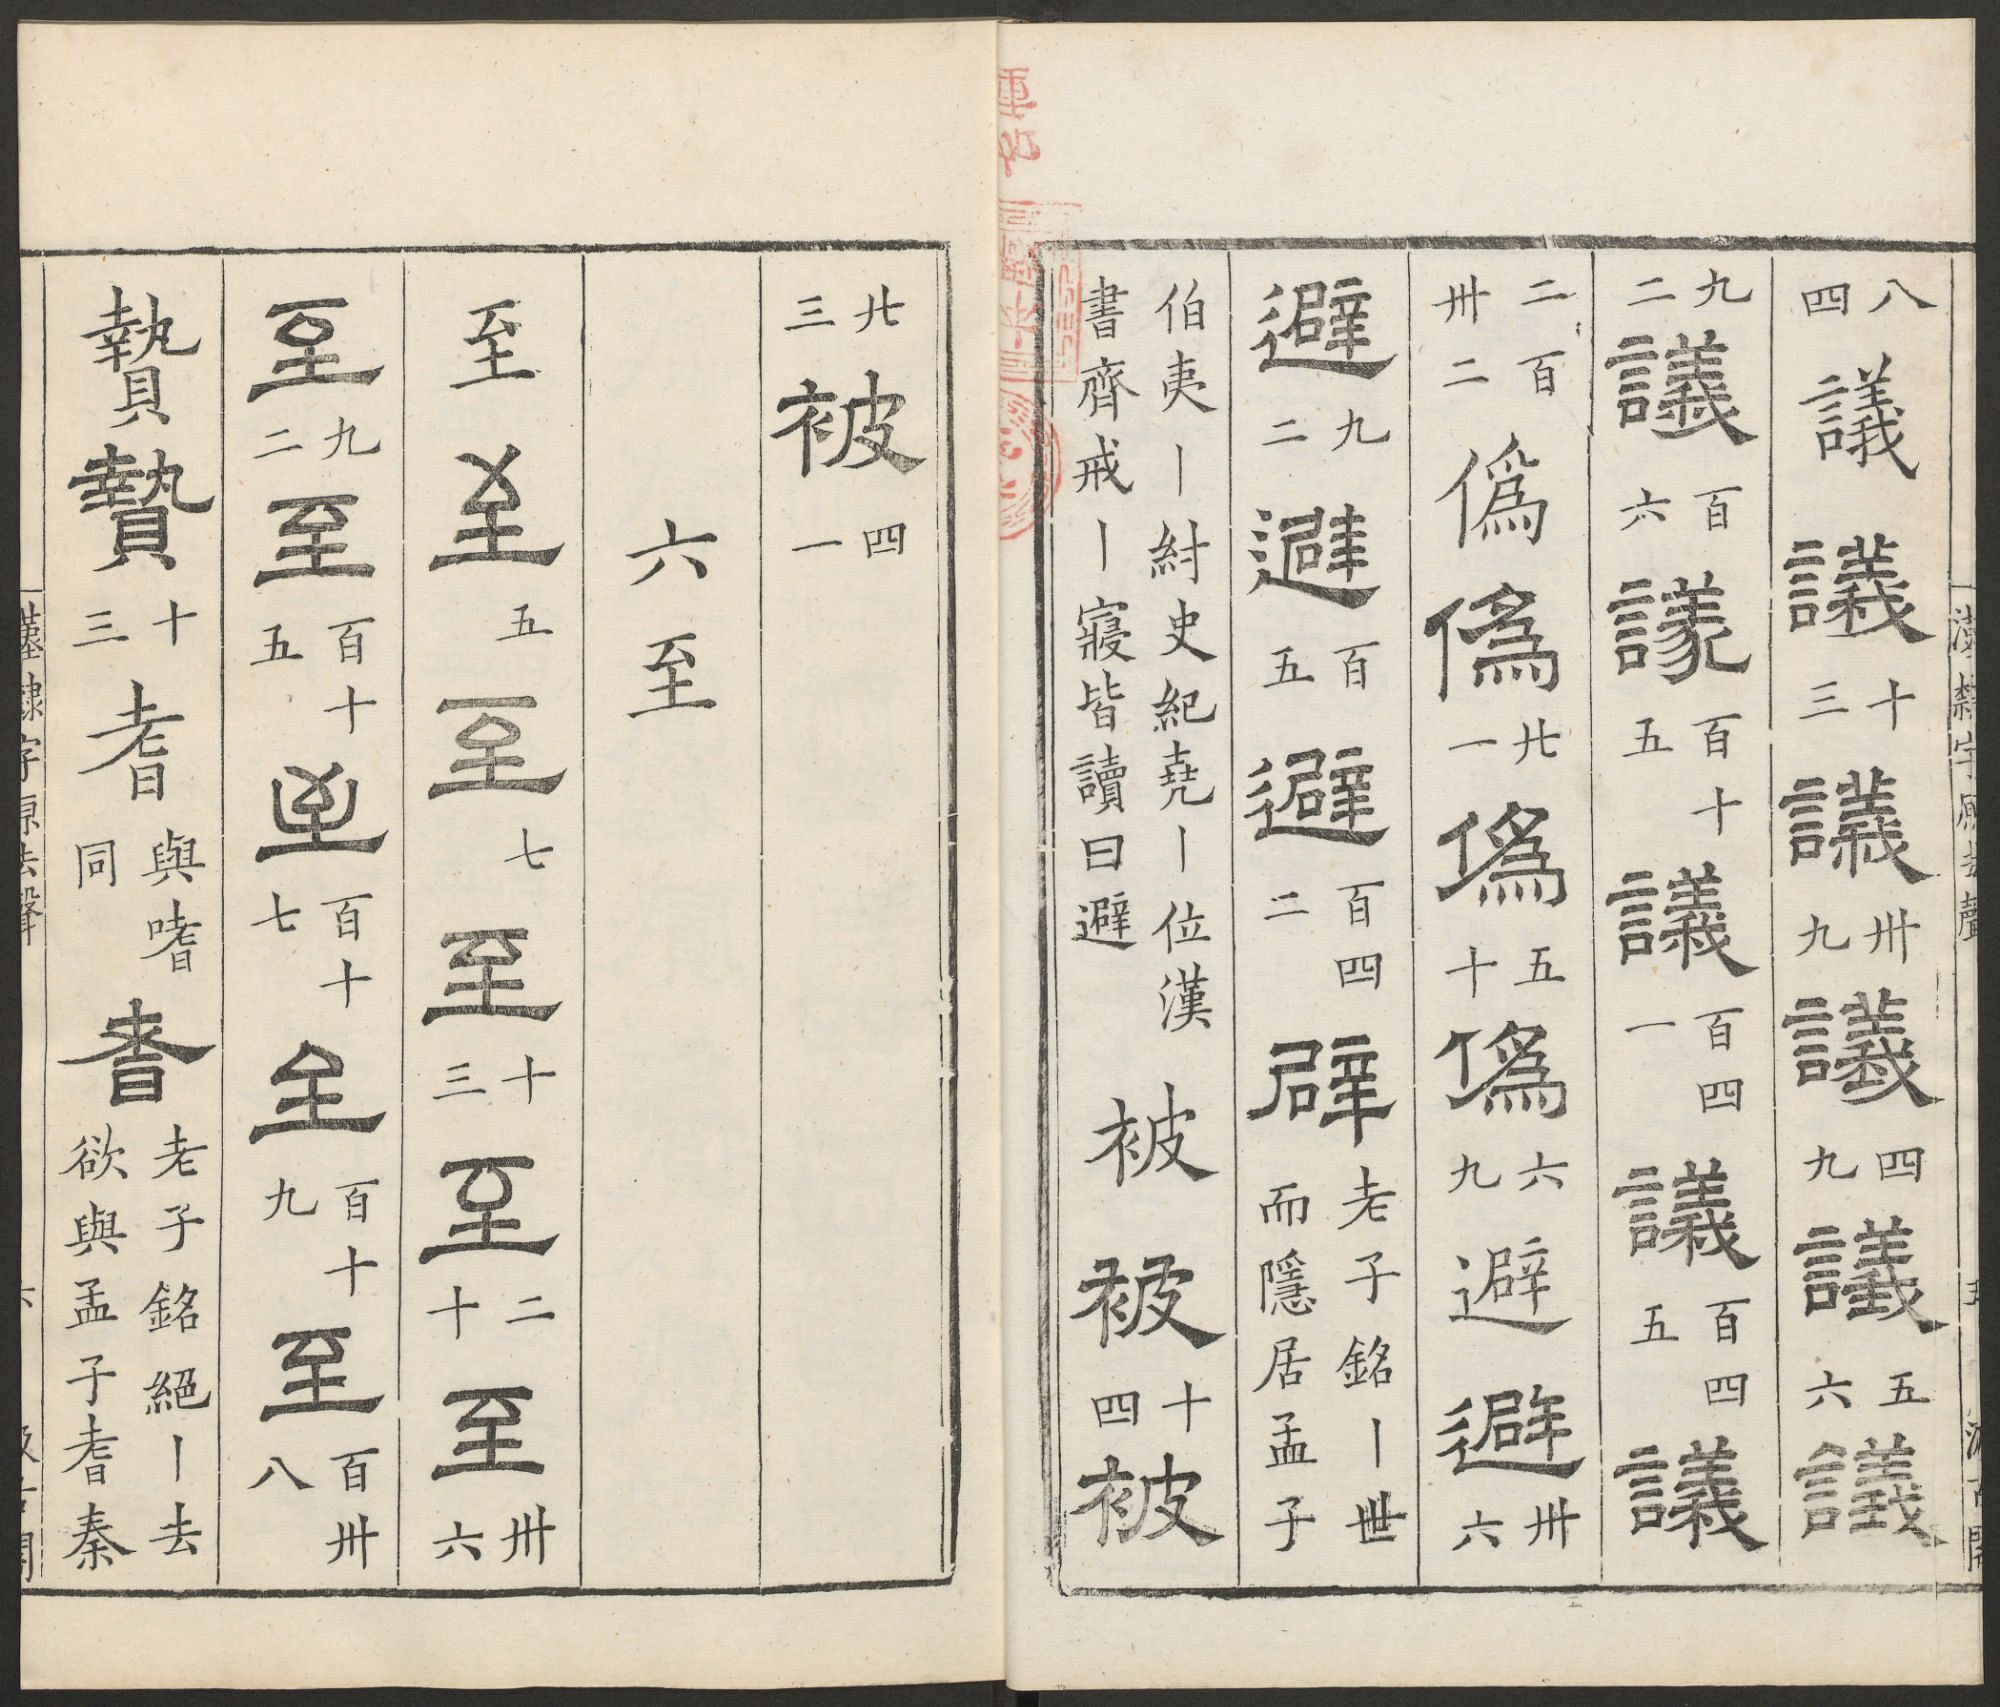 漢隸字原去聲 五 汲古閣
八四議議十三議卅九議四九議五六議
九二議百六議百十五議百四一議百四五議
二百卅二僞僞廿一僞五十僞六九避避卅六
避九二避百五避百四二辟老子銘丨世而隱居孟子
伯夷丨紂史紀堯丨位漢書齊戒丨寢皆讀曰避被被十四被
廿三被四一
六至
至至五至七至十三至二十至卅六
至九二至百十五至百十七至百十九至百卅八
贄贄十三耆與嗜同耆老子銘絕丨去欲與孟子耆秦
漢隸字原去聲 六 汲古閣